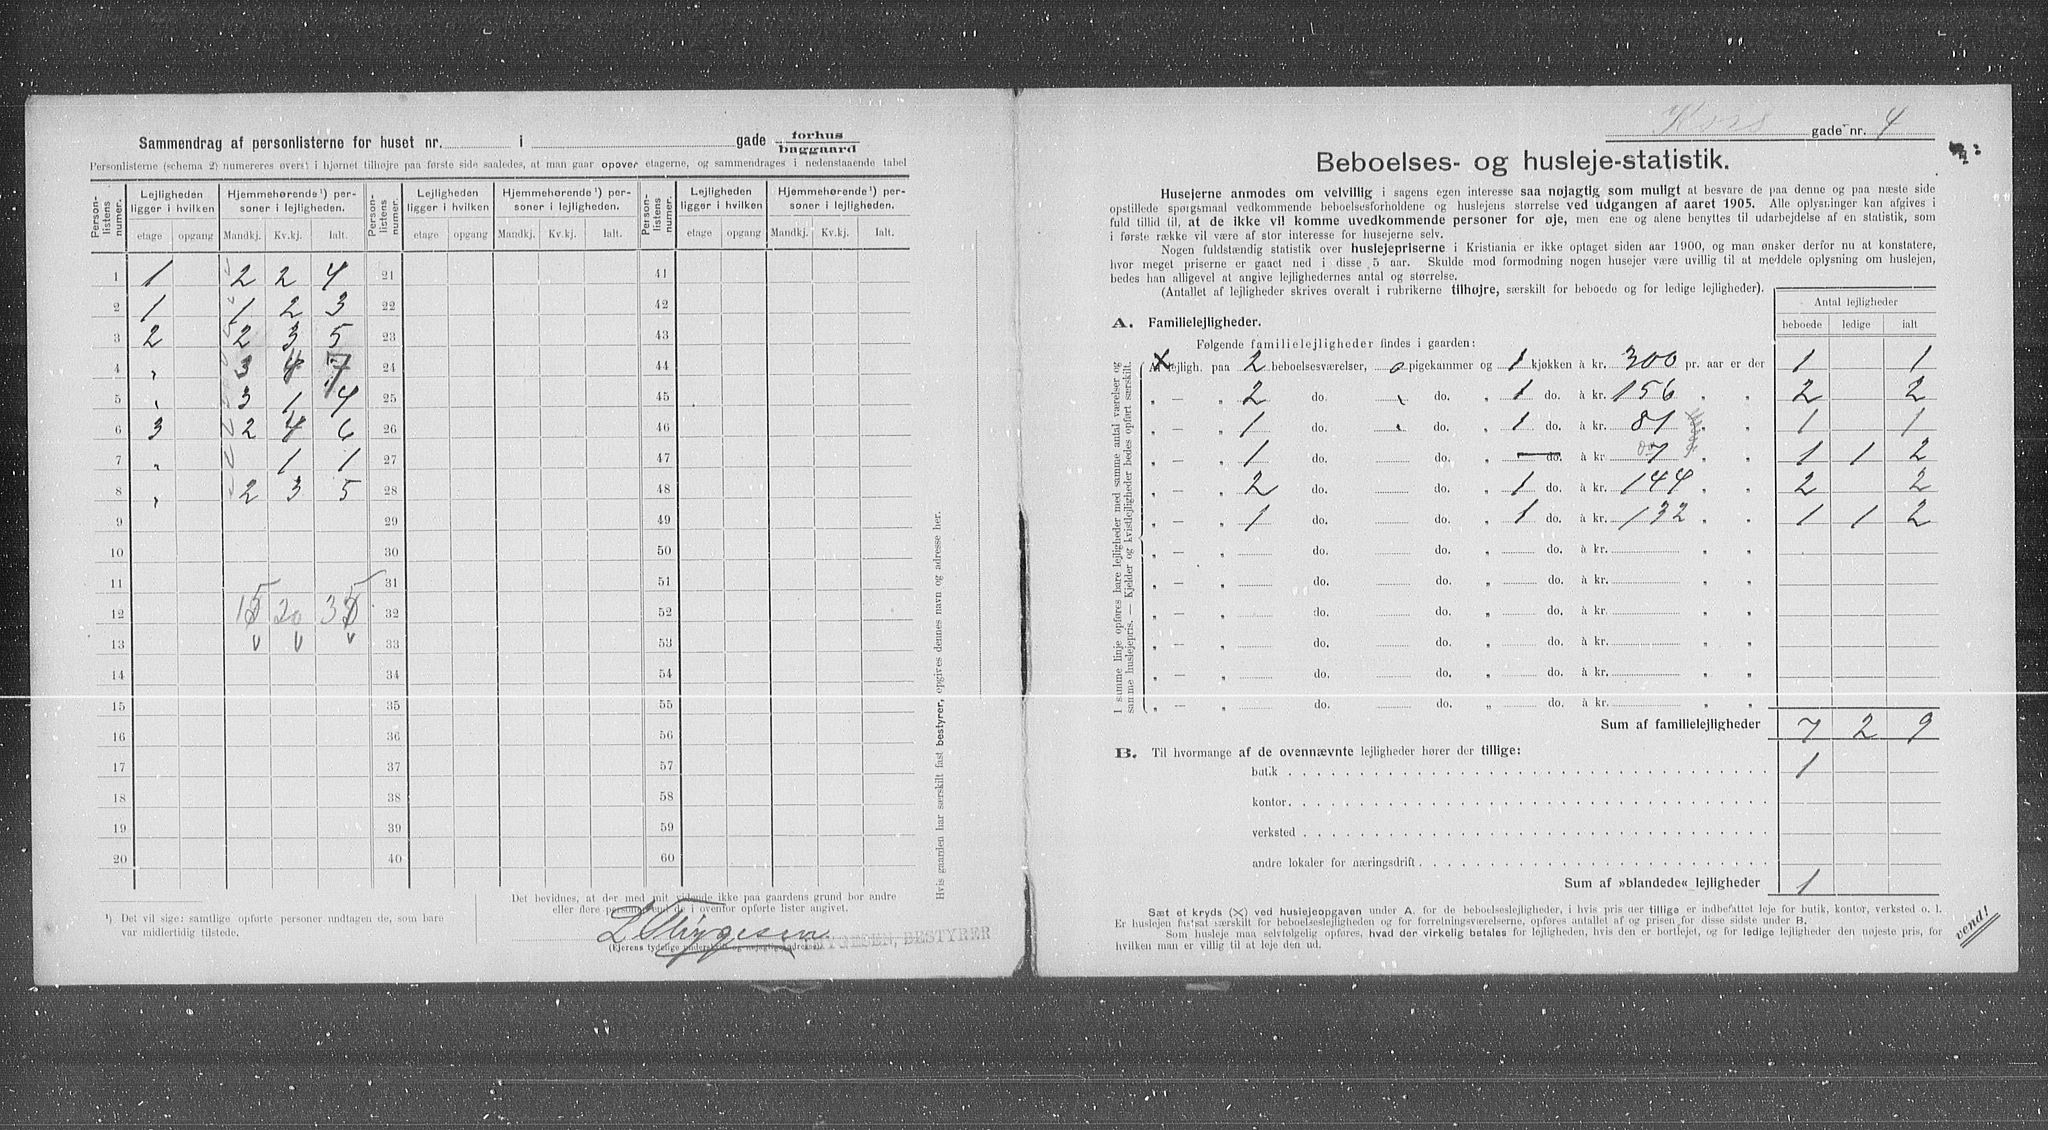 Sammendrag af personlisterne for huset nr. i gade forhus baggaard
Personlisterne (schema 2) numereres øverst i hjørnet tilhøjre paa første side saaledes, at man gaar opover etagerne, og sammendrages i nedenstaaende tabel
Person-listens numer. Lejligheden ligger i hvilken Hjemmehørende¹) personer i lejligheden. Person-listens numer. Lejligheden ligger i hvilken Hjemmehørende¹) personer i lejligheden. Person-listens numer. Lejligheden ligger i hvilken Hjemmehørende¹) personer i lejligheden.
etage opgang Mandkj. Kv.kj. Ialt. etage opgang Mandkj. Kv.kj. Ialt. etage opgang Mandkj. Kv.kj. Ialt.
1 1 2 2 4 21 41
2 1 1 2 3 22 42
3 2 2 3 5 23 43
4 „ 3 4 7 24 44
5 „ 3 1 4 25 45
6 3 2 4 6 26 46
7 „ 1 1 27 47
8 „ 2 3 5 28 48
9 29 49
10 30 50
11 31 51
12 15 20 35 32 52
13 33 53
14 34 54
15 35 55
16 36 56
17 37 57
18 38 58
19 39 59
20 40 60
¹) Det vil sige: samtlige opførte personer undtagen de, som bare
var midlertidig tilstede.
Det bevidnes, at der med mit vidende ikke paa gaardens grund bor andre
eller flere personer end de i ovenfor opførte lister angivet.
(Ejerens tydelige underskrift og nøjagtige adresse).
BESTYRER
Hvis gaarden har særskilt fast bestyrer, opgives dennes navn og adresse her.
Kors gade nr. 4
Beboelses- og husleje-statistik.
Husejerne anmodes om velvillig i sagens egen interesse saa nøjagtig som muligt at besvare de paa denne og paa næste side
opstillede spørgsmaal vedkommende beboelsesforholdene og huslejens størrelse ved udgangen af aaret 1905. Alle oplysninger kan afgives i
fuld tillid til, at de ikke vil komme uvedkommende personer for øje, men ene og alene benyttes til udarbejdelse af en statistik, som
i første række vil være af stor interesse for husejerne selv.
Nogen fuldstændig statistik over huslejepriserne i Kristiania er ikke optaget siden aar 1900, og man ønsker derfor nu at konstatere,
hvor meget priserne er gaaet ned i disse 5 aar. Skulde mod formodning nogen husejer være uvillig til at meddele oplysning om huslejen,
bedes han alligevel at angive lejlighedernes antal og størrelse.
(Antallet af lejligheder skrives overalt i rubrikerne tilhøjre, særskilt for beboede og for ledige lejligheder).
Antal lejligheder
beboede ledige ialt
A. Familielejligheder.
Følgende familielejligheder findes i gaarden:
Af lejligh. paa 2 beboelsesværelser, 0 pigekammer og 1 kjøkken à kr. 300 pr. aar er der 1 1
„ — „ 2 do. „ do. „ 1 do. à kr. 156 „ „ 2 2
„ — „ 1 do. „ do. „ 1 do. à kr. 81 „ „ 1 1
„ — „ 1 do. do. „ do. à kr. „ „ 1 1 2
„ — „ 2 do. do. „ 1 do. à kr. 144 „ „ 2 2
„ — „ 1 do. do. „ 1 do. à kr. 132 „ „ 1 1 2
„ — „ do. do. „ do. à kr. „ „
„ — „ do. do. „ do. à kr. „ „
„ — „ do. do. „ do. à kr. „ „
„ — „ do. do. „ do. à kr. „ „
„ — „ do. do. „ do. à kr. „ „
„ — „ do. do. „ do. à kr. „ „
I samme linje opføres bare lejligheder med samme antal værelser og
samme huslejepris. — Kjelder og kvistlejligheder bedes opført særskilt.
Sum af familielejligheder 7 2 9
B. Til hvormange af de ovennævnte lejligheder hører der tillige:
butik 1
kontor
verksted
andre lokaler for næringsdrift
Sum af »blandede« lejligheder 1
Sæt et kryds (×) ved huslejeopgaven under A. for de beboelseslejligheder, i hvis pris der tillige er indbefattet leje for butik, kontor, verksted o. l.
Er huslejen fastsat særskilt for beboelseslejligheden og for forretningsværelserne, opføres antallet af og prisen for disse sidste under B.
Som husleje maa selvfølgelig opføres, hvad der virkelig betales for lejligheden, hvis den er bortlejet, og for ledige lejligheder den nøjeste pris, for
hvilken man er villig til at leje den ud.
vend!